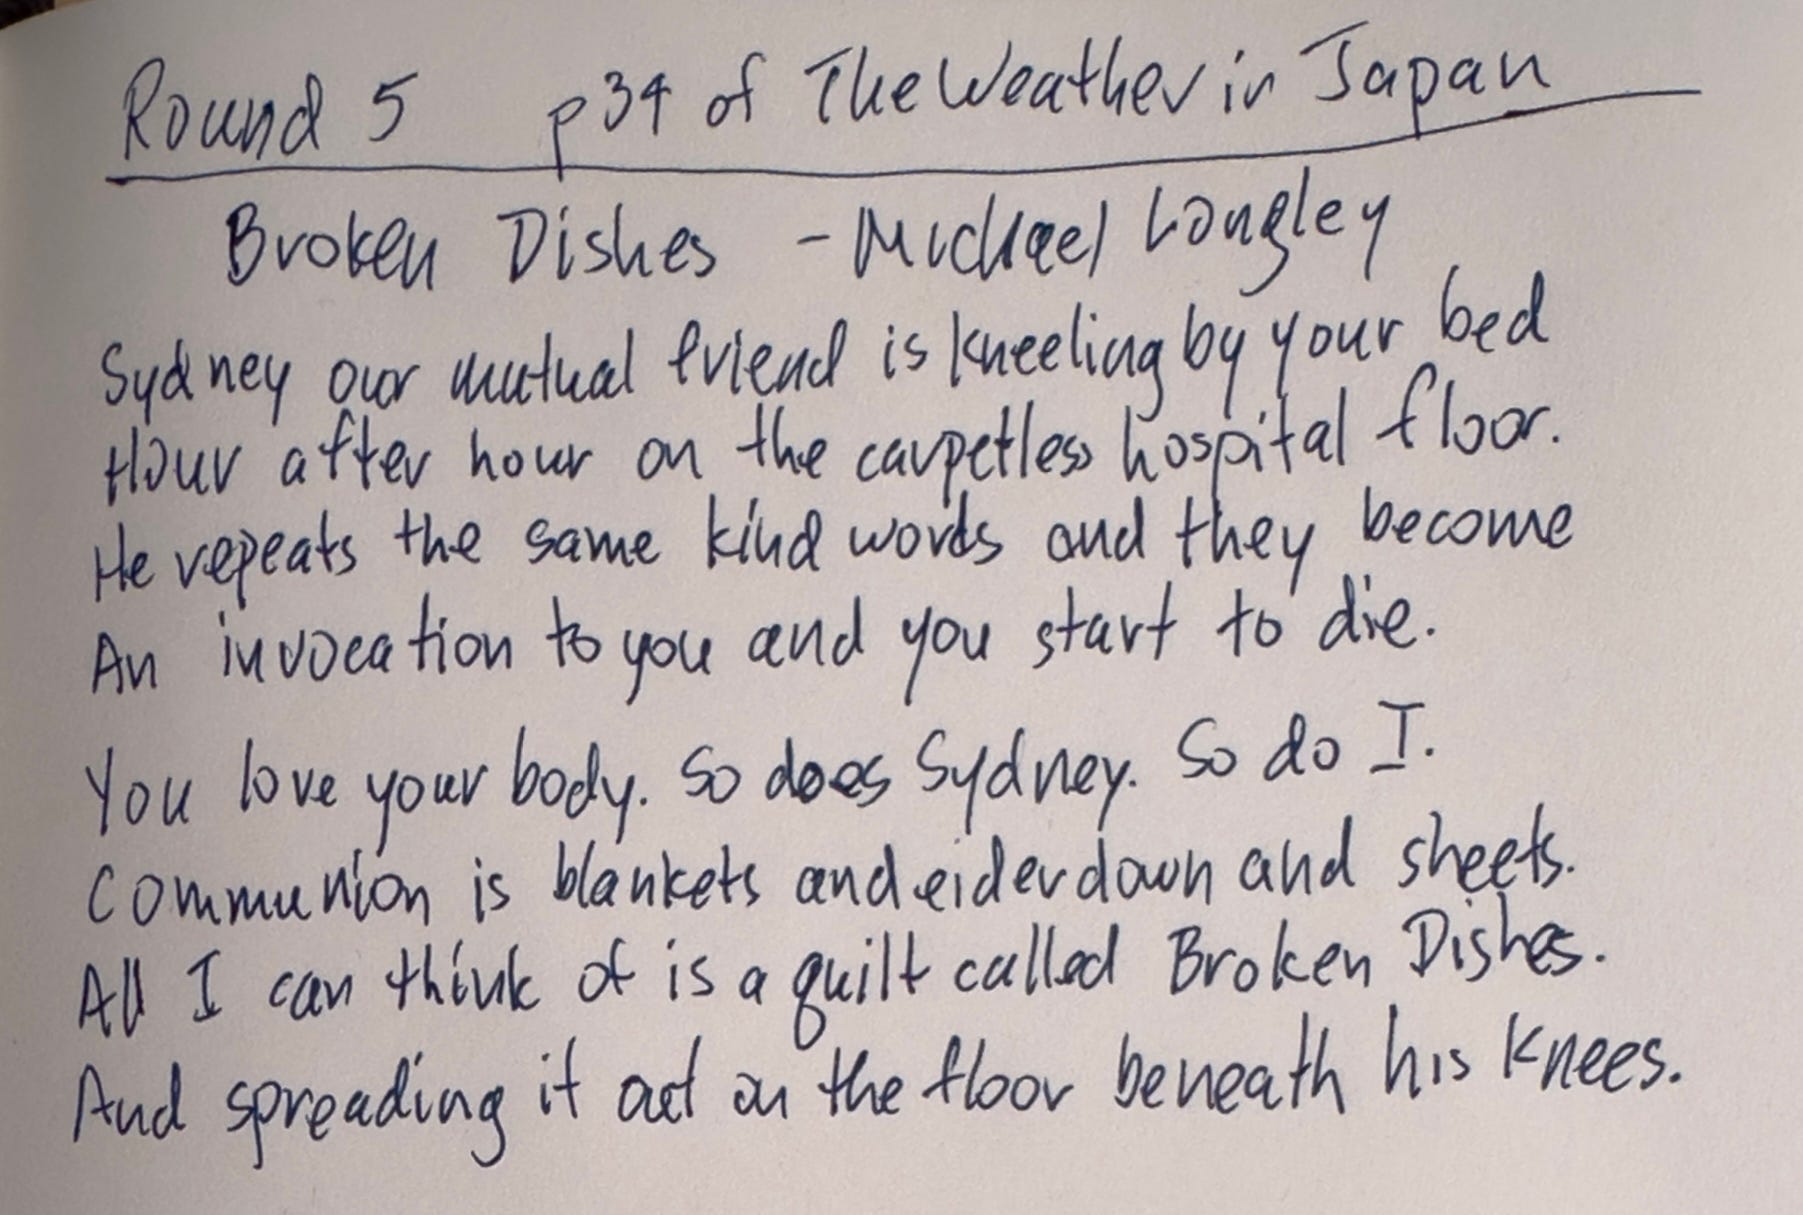 Round 5 p34 of The Weather in Japan
Broken Dishes - Michael Longley
Sydney our mutual friend is kneeling by your bed
Hour after hour on the carpetless hospital floor.
He repeats the same kind words and they become
An invocation to you and you start to die.
You love your body. So does Sydney. So do I.
Communion is blankets and eiderdown and sheets.
All I can think of is a quilt called Broken Dishes.
And spreading it out on the floor beneath his knees.